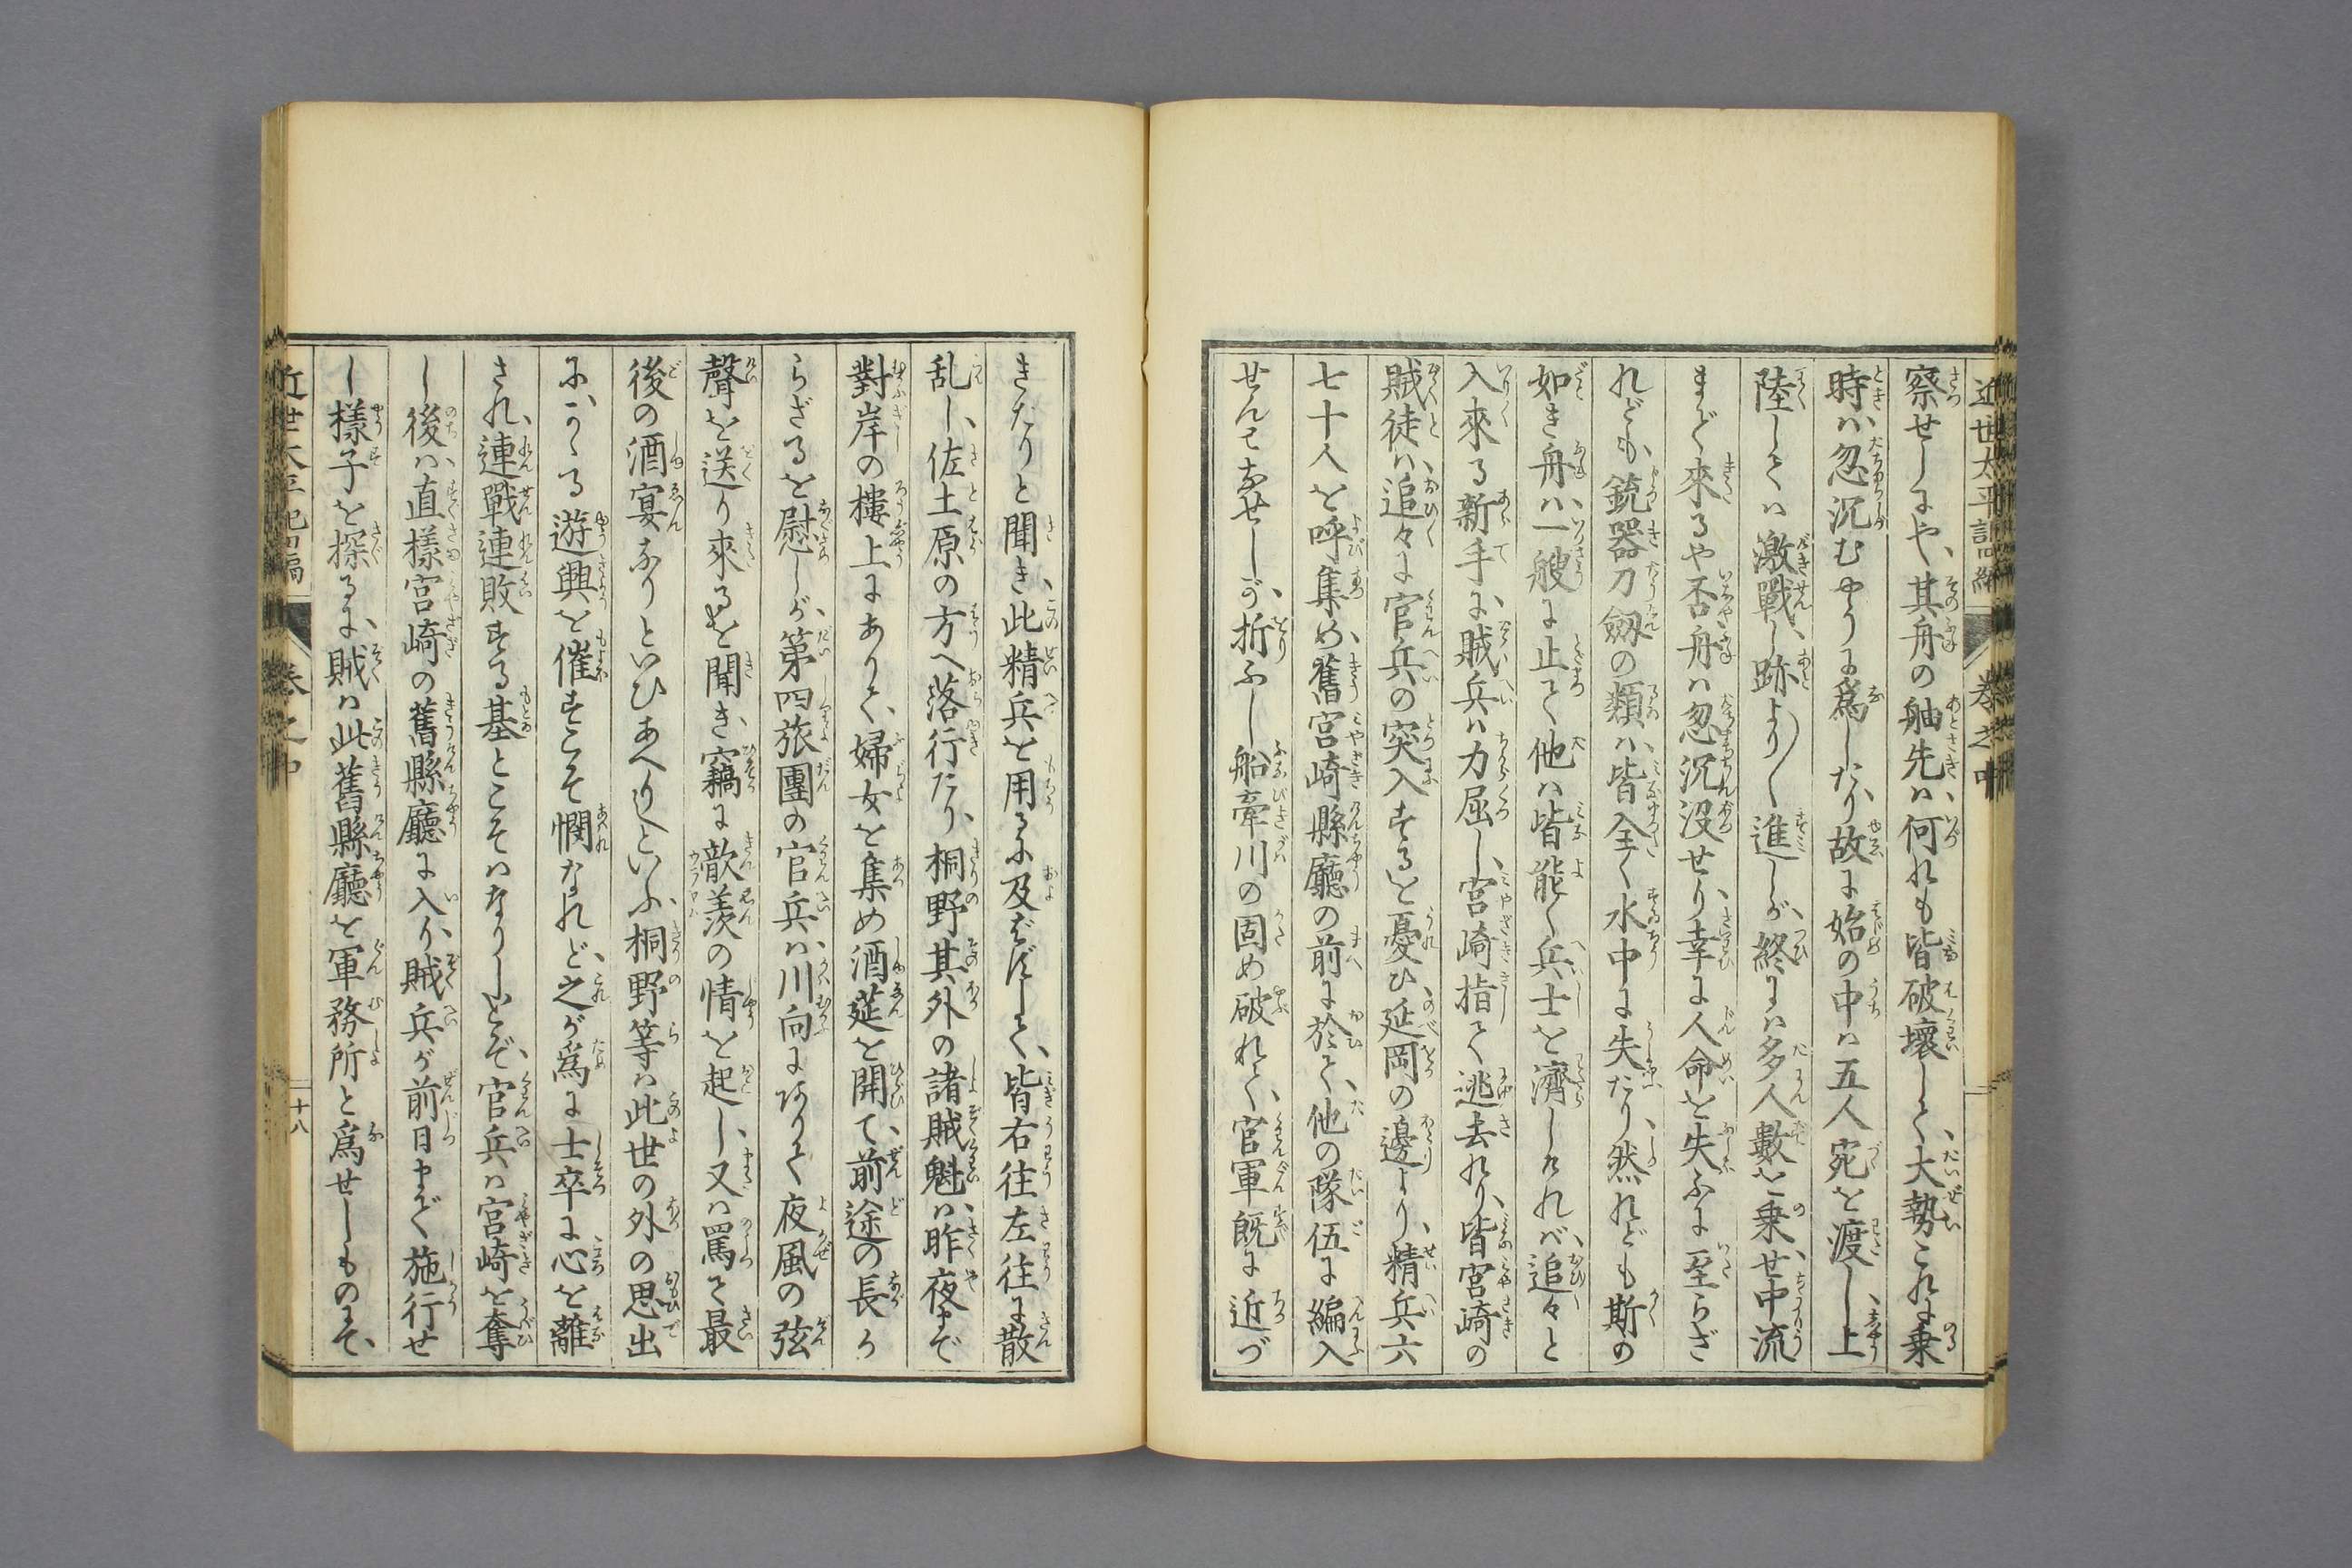 察せしにや、其舟の舳先ハ、何れも皆破壊して、大勢これに乗
時ハ、忽沉むやうに爲したり、故に始の中ハ五人宛を渡し、上
陸してハ激戰し、跡より〱進しが、終にハ多人數を乗せ、中流
まで來るや否舟ハ忽沉没せり、幸に人命を失ふに至らざ
れども、銃器刀劔の類ハ、皆全く水中に失たり、然れども斯の
如き舟ハ、一艘に止て他ハ皆能く兵士を濟しけれバ、追々と
入來る新手に、賊兵ハ力屈し、宮崎指て逃去れり、皆宮崎の
賊徒ハ、追々に官兵の突入するを憂ひ、延岡の邊より、精兵六
七十人を呼集め、舊宮崎縣廳の前に於て、他の隊伍に編入
せんとなせしが、折ふし船牽川の固め破れて、官軍既に近づ
近世太平記四編 卷之中
きたりと聞き、此精兵を用るに及ばずして、皆右往左往に散
乱し、佐土原の方へ落行たり、桐野其外の諸賊魁ハ、昨夜まで
對岸の樓上にありて、婦女を集め酒莚を開て、前途の長か
らざるを慰しが、第四旅團の官兵ハ、川向に在りて夜風の弦
聲を送り來るを聞き、竊に歆羨の情を起し、又ハ罵て最
後の酒宴なりといひあへりといふ、桐野等ハ此世の外の思出
に、かゝる遊興を催すこそ憫なれど、之が爲に士卒に心を離
され、連戰連敗する基とこそハなりしとぞ、官兵ハ宮崎を奪
し後ハ、直樣宮崎の舊縣廳に入り、賊兵が前日まで施行せ
し樣子を探るに、賊ハ此舊縣廳を軍務所と爲せしものにて、
近世太平記四編 卷之中 十八